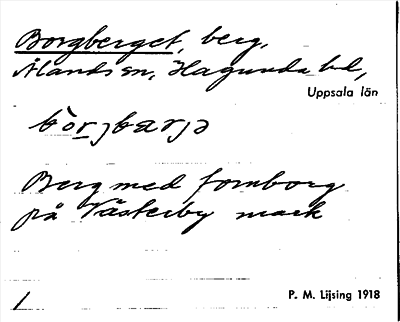 Borgberget, berg,
Ålands sn, Hagunda hd,
Uppsala län
bòrjbærjə
Berg med fornborg
på Västerby mark
1
P. M. Lijsing 1918